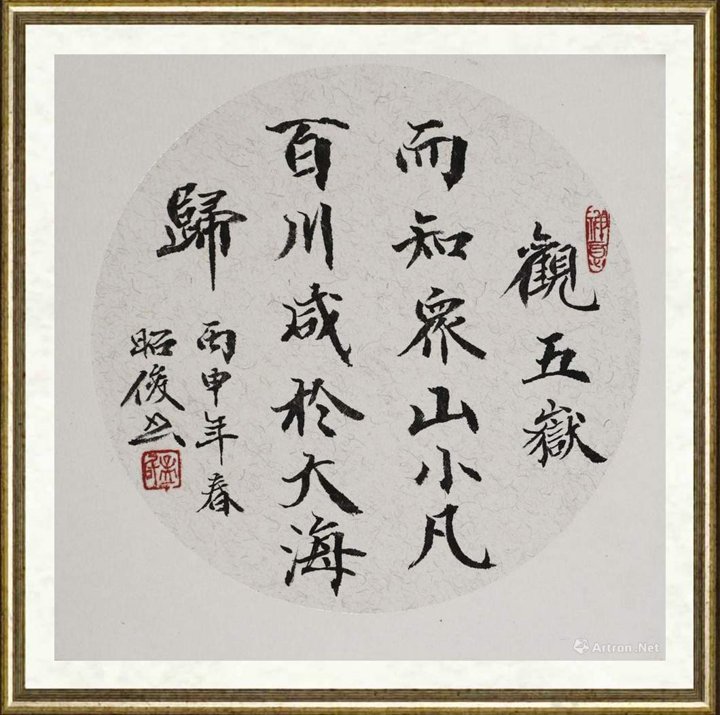 觀五嶽
而知眾山小凡
百川咸於大海
歸
丙申年春
昭俊书
Artron.Net